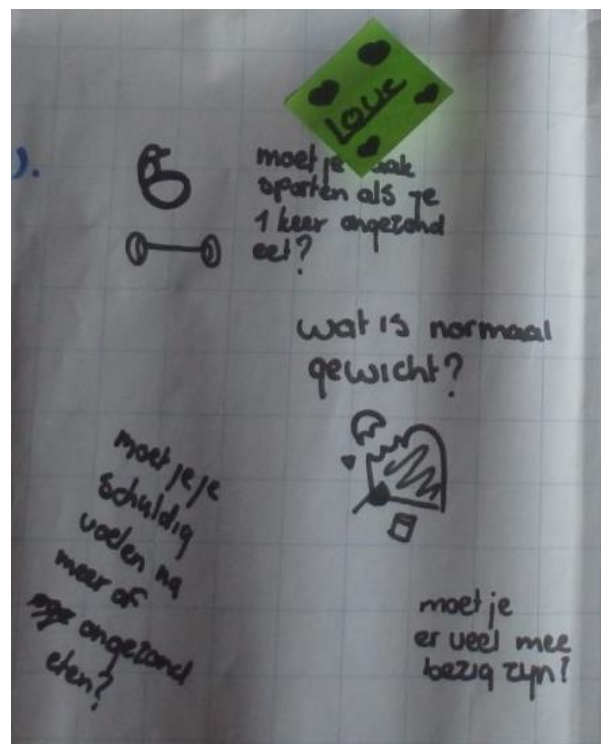 ).
Love
moet je vaak
sporten als je
1 keer ongezond
eet?
wat is normaal
gewicht?
moet je je
schuldig
voelen na
meer of
ongezond
eten?
moet je
er veel mee
bezig zijn?